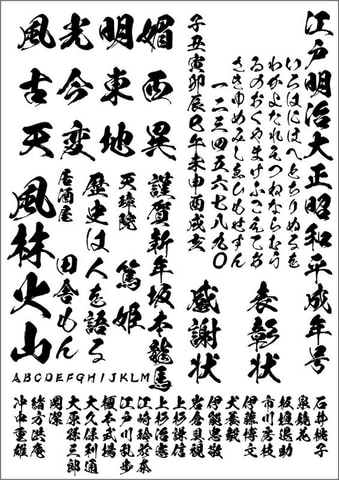 江戸明治大正昭和平成年号
いろはにほへとちりぬるを
わかよたれそつねならむう
ゐのおくやまけふこえてあ
さきゆめみしゑひもせすん
一二三四五六七八九〇
子丑寅卯辰巳午未申酉戌亥
風光明媚
古今東西
天変地異
表彰状
感謝状
謹賀新年坂本龍馬
天璋院
篤姫
歴史は人を語る
居酒屋
田舎もん
風林火山
ABCDEFGHIJKLM
石井桃子
泉鏡花
板垣退助
市川房枝
伊藤博文
犬養毅
伊能忠敬
岩倉具視
上杉謙信
上杉治憲
江崎玲於奈
江戸川乱歩
榎本武揚
大久保利通
大原孫三郎
岡潔
緒方洪庵
沖中重雄